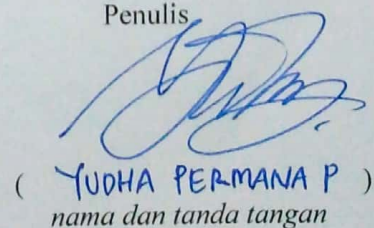 Penulis
( YUDHA PERMANA P )
nama dan tanda tangan